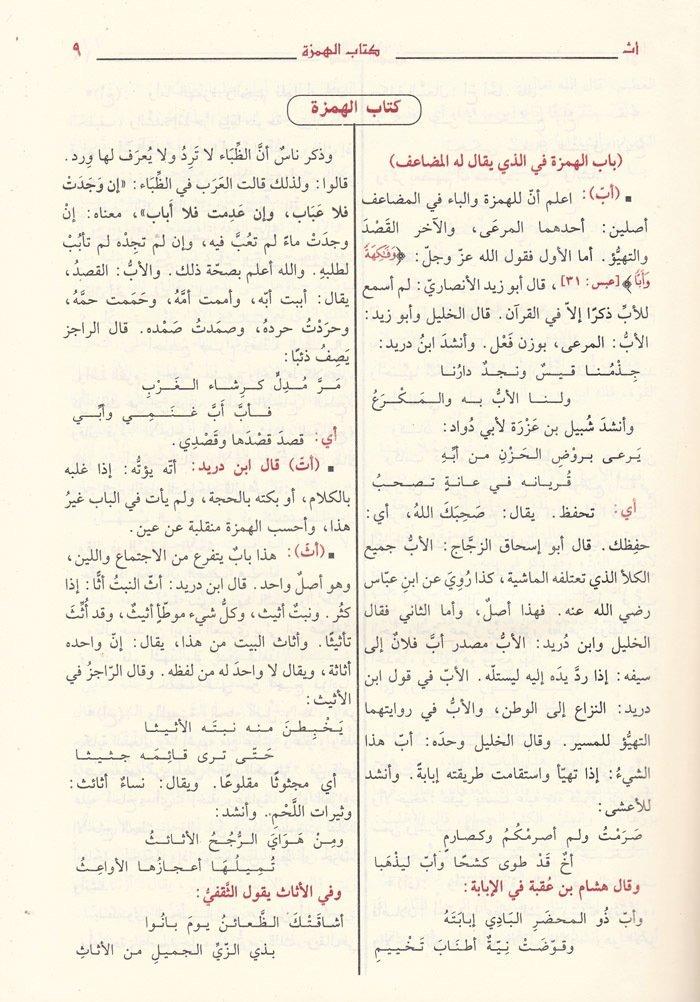 اث
كتاب الهمزة
٩
كتاب الهمزة
(باب الهمزة في الذي يقال له المضاعف)
▪ (أبّ): اعلم أنّ للهمزة والباء في المضاعف
أصلين: أحدهما المرعَى، والآخر القَصْدَ
والتهيُّؤ. أما الأول فقول الله عزّ وجلّ: ﴿وَفَٰكِهَةً
وَأَبًّا﴾ [عبس: ٣١]، قال أبو زيد الأنصاريّ: لم أسمع
للأبِّ ذكرًا إلاّ في القرآن. قال الخليل وأبو زيد:
الأبُّ: المرعى، بوزن فَعْل. وأنشدَ ابنُ دريد:
جِذْمُنا قيسٌ ونجدٌ دارُنا
ولنا الأبُّ به والمَكْرَعُ
وأنشدَ شُبيل بن عَزْرَة لأبي دُواد:
يَرعى بروْضِ الحَزْنِ من أبِّهِ
قُريانه في عانةٍ تصحبُ
أي: تحفظ. يقال: صَحِبَكَ اللهُ، أي:
حفِظك. قال أبو إسحاق الزجّاج: الأبُّ جميع
الكلأ الذي تعتلفه الماشية، كذا رُوِيَ عن ابنِ عبّاس
رضي الله عنه. فهذا أصلٌ، وأما الثاني فقال
الخليل وابن دُريد: الأبُّ مصدر أبَّ فلانٌ إلى
سيفه: إذا ردَّ يدَه إليه ليستلّه. الأبّ في قول ابن
دريد: النزاع إلى الوطن، والأبُّ في روايتهما
التهيُّؤ للمسير. وقال الخليل وحدَه: أبّ هذا
الشيءُ: إذا تهيّأ واستقامت طريقته إبابةً. وأنشد
للأعشى:
صَرَمْتُ ولم أصرمْكُمُ وكصارمٍ
أخٌ قَدْ طوى كشحًا وأبّ ليذْهَبا
وقال هشام بن عُقبة في الإبابة:
وأبّ ذُو المحضَرِ البَادِي إبابَتَهُ
وقوّضَتْ نِيّةٌ أطنابَ تَخْيِيمِ
وذكر ناسٌ أنَّ الظِّبَاء لا تَرِدُ ولا يُعرَف لها وِرد.
قالوا: ولذلك قالت العَرَب في الظِّبَاء: «إن وَجَدَتْ
فلا عَبَاب، وإن عَدِمت فلا أباب»، معناه: إنْ
وجدَتْ ماءً لم تعُبَّ فيه، وإن لمْ تجِدْه لم تأبُبْ
لطلبهِ. والله أعلم بصحّة ذلك. والأبُّ: القصدُ،
يقال: أببت أبّه، وأممت أمَّهُ، وحَمَمت حمَّهُ،
وحرَدْتُ حردهُ، وصمَدتُ صَمْده. قال الراجز
يَصِفُ ذئبًا:
مَرَّ مُدِلٍّ كرِشاء الغَرْبِ
فأبَّ أبَّ غنَمِي وأبِّي
أي: قصدَ قصْدَها وقَصْدِي.
▪ (أتّ) قال ابن دريد: أتّه يؤتُّه: إذا غلبه
بالكلام، أو بكته بالحجة، ولم يأت في الباب غيرُ
هذا، وأحسب الهمزة منقلبة عن عين.
▪ (أثّ): هذا بابٌ يتفرع من الاجتماع واللين،
وهو أصلٌ واحد. قال ابن دريد: أثّ النبتُ أثًّا: إذا
كثُر. ونبتٌ أثيث، وكلُّ شيء موطّإ أثيثٌ، وقد أُثِّثَ
تأثيثًا. وأثاث البيت من هذا، يقال: إنّ واحده
أثاثة، ويقال لا واحدَ له من لفظه. وقال الرّاجزُ في
الأثيث:
يَخْبِطنَ منه نبتَه الأثيثا
حَتّى ترى قائِمَه جثيثا
أي مجثوثًا مقلوعًا. ويقال: نساءٌ أثائث:
وثيرات اللّحْمِ. وأنشد:
ومِنْ هَوَايَ الرُّجُحُ الأثائثُ
تُمِيلُهَا أعجازُها الأواعِثُ
وفي الأثاث يقول الثَّقفيُّ:
أشاقَتْكَ الظَّعائنُ يومَ بانُوا
بذي الزِّيِّ الجميلِ من الأثاثِ